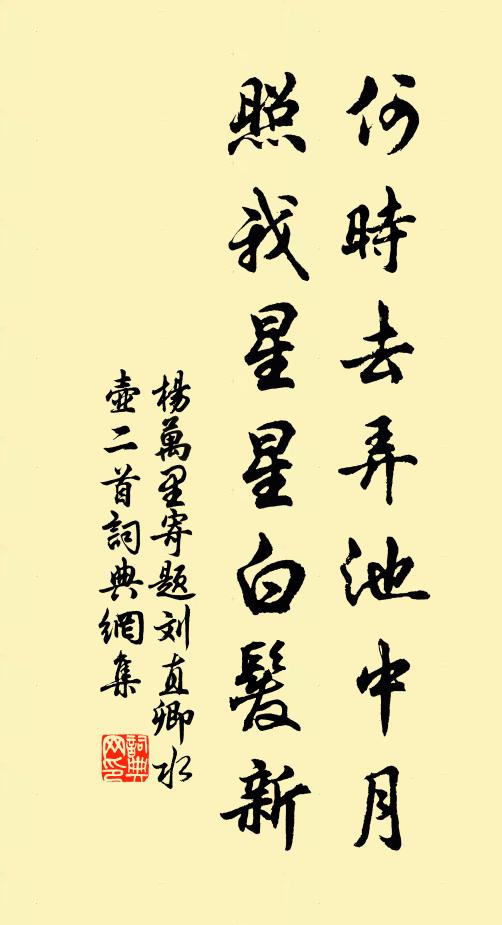 何時去弄池中月
照我星星白髮新
楊萬里寄題刘直卿水
壺二首詞典網集
詞典
网印